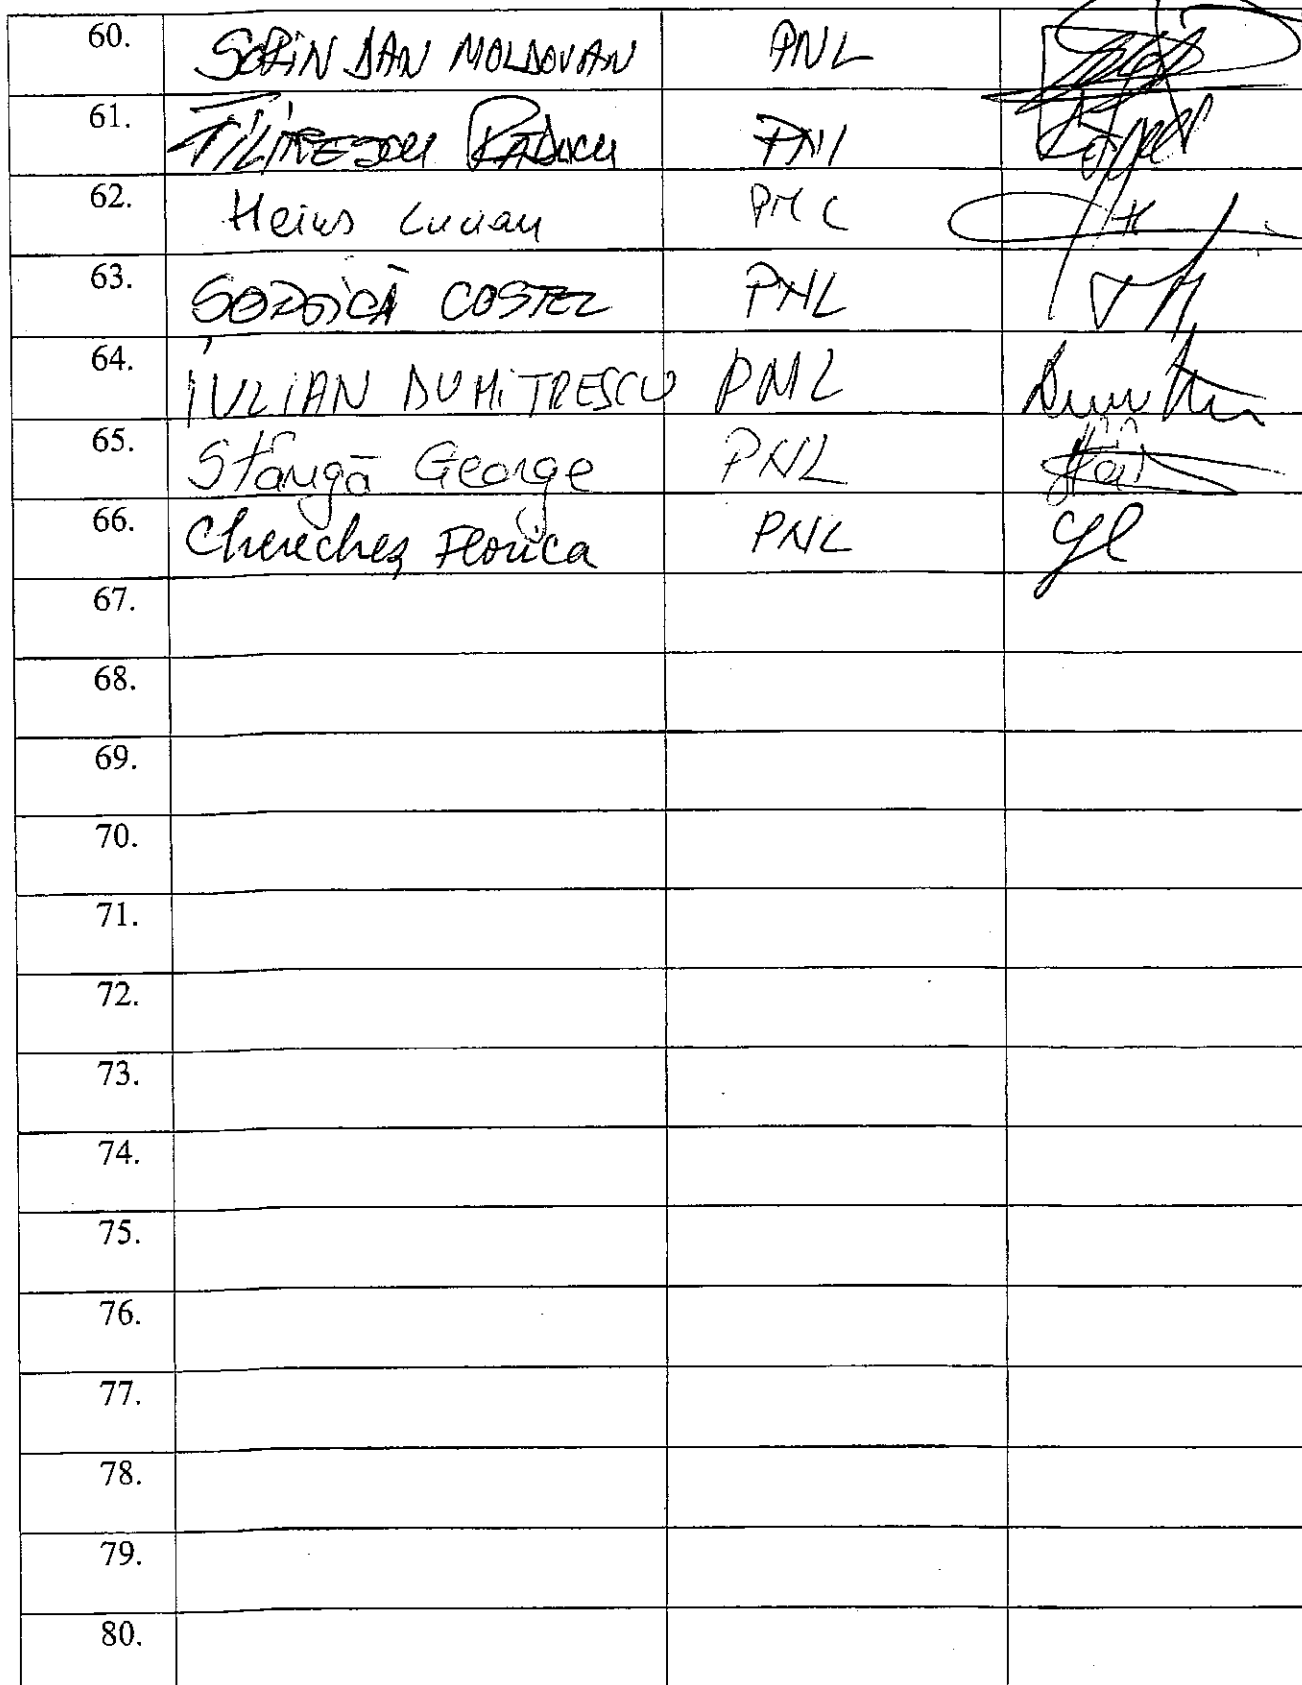 60. SORIN DAN MOLDOVAN PNL
61. PNL
62. Heius Lucian PNL
63. COSTEL PNL
64. IULIAN DUMITRESCU PNL
65. Stângă George PNL
66. Chereches Florica PNL
67.
68.
69.
70.
71.
72.
73.
74.
75.
76.
77.
78.
79.
80.